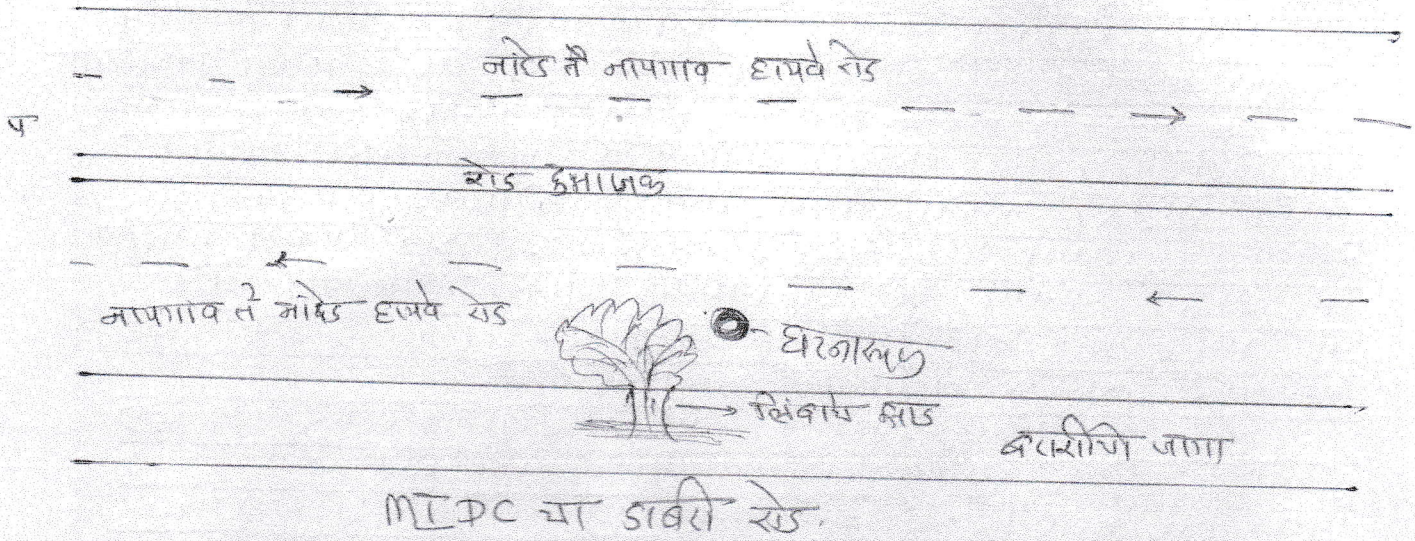 नांदेड ते नायगाव हायवे रोड
प
रोड दुभाजक
नायगाव ते नांदेड हायवे रोड
घटनास्थळ
लिंबाचे झाड
जागा
MIDC चा डांबरी रोड.